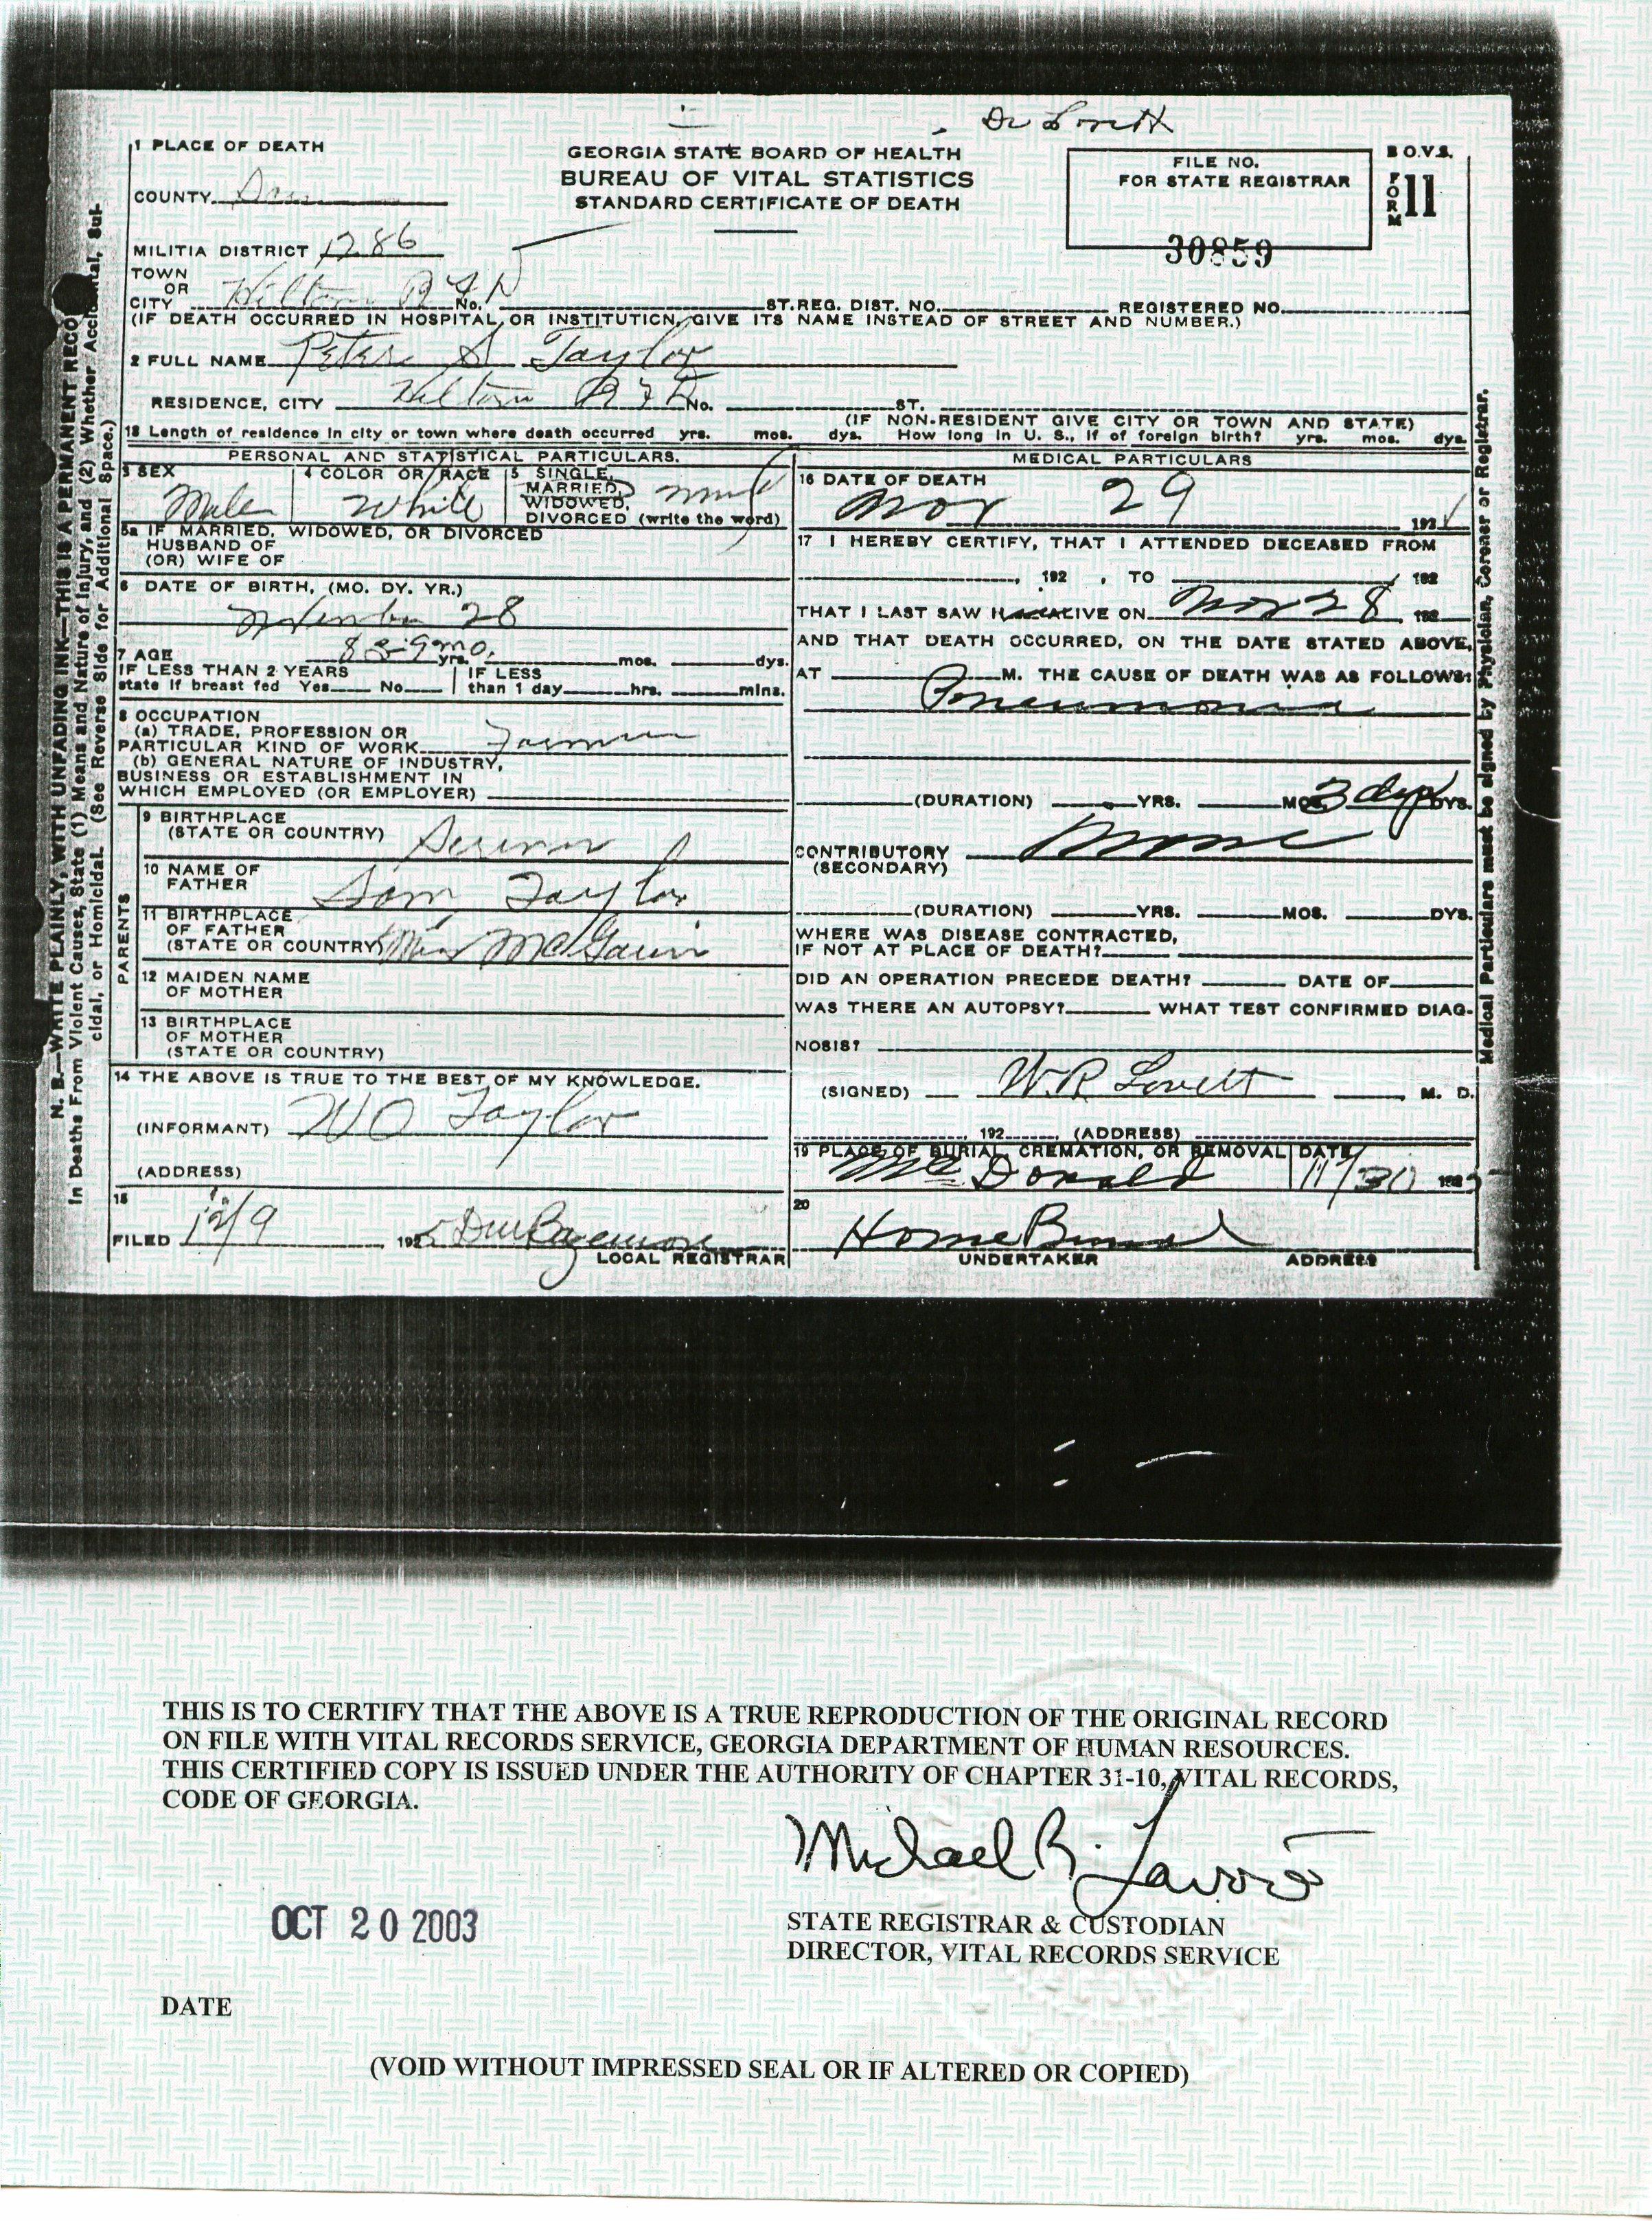 Dr Lovett
1 PLACE OF DEATH
COUNTY
MILITIA DISTRICT 1286
GEORGIA STATE BOARD OF HEALTH
BUREAU OF VITAL STATISTICS
STANDARD CERTIFICATE OF DEATH
FILE NO.
FOR STATE REGISTRAR
30859
B.O.V.S.
FORM 11
TOWN
OR
CITY Hiltonia R F D No. ST. REG. DIST. NO. REGISTERED NO.
(IF DEATH OCCURRED IN HOSPITAL OR INSTITUTION, GIVE ITS NAME INSTEAD OF STREET AND NUMBER.)
2 FULL NAME Peter S Taylor
RESIDENCE, CITY Hiltonia R F D No. ST.
(IF NON-RESIDENT GIVE CITY OR TOWN AND STATE)
18 Length of residence in city or town where death occurred yrs. mos. dys. How long in U. S., if of foreign birth? yrs. mos. dys.
PERSONAL AND STATISTICAL PARTICULARS.
3 SEX
Male
4 COLOR OR RACE
White
5 SINGLE,
MARRIED,
WIDOWED,
DIVORCED (write the word)
5a IF MARRIED, WIDOWED, OR DIVORCED
HUSBAND OF
(OR) WIFE OF
6 DATE OF BIRTH, (MO. DY. YR.)
November 28
7 AGE 83-9mo. yrs. mos. dys.
IF LESS THAN 2 YEARS
state if breast fed Yes No
IF LESS
than 1 day hrs. mins.
8 OCCUPATION
(a) TRADE, PROFESSION OR
PARTICULAR KIND OF WORK Farmer
(b) GENERAL NATURE OF INDUSTRY,
BUSINESS OR ESTABLISHMENT IN
WHICH EMPLOYED (OR EMPLOYER)
PARENTS
9 BIRTHPLACE
(STATE OR COUNTRY) Screven
10 NAME OF
FATHER Sam Taylor
11 BIRTHPLACE
OF FATHER
(STATE OR COUNTRY) Miss
12 MAIDEN NAME
OF MOTHER
13 BIRTHPLACE
OF MOTHER
(STATE OR COUNTRY)
14 THE ABOVE IS TRUE TO THE BEST OF MY KNOWLEDGE.
(INFORMANT) W O Taylor
(ADDRESS)
15
FILED 12/9 192
LOCAL REGISTRAR
MEDICAL PARTICULARS
16 DATE OF DEATH
Nov 29 192
17 I HEREBY CERTIFY, THAT I ATTENDED DECEASED FROM
, 192 , TO 192
THAT I LAST SAW H ALIVE ON Nov 28, 192
AND THAT DEATH OCCURRED, ON THE DATE STATED ABOVE,
AT M. THE CAUSE OF DEATH WAS AS FOLLOWS:
Pneumonia
(DURATION) YRS. MOS. 3 days DYS.
CONTRIBUTORY None
(SECONDARY)
(DURATION) YRS. MOS. DYS.
WHERE WAS DISEASE CONTRACTED,
IF NOT AT PLACE OF DEATH?
DID AN OPERATION PRECEDE DEATH? DATE OF
WAS THERE AN AUTOPSY? WHAT TEST CONFIRMED DIAG-
NOSIS?
(SIGNED) W.R Lovett M. D.
, 192 , (ADDRESS)
19 PLACE OF BURIAL, CREMATION, OR REMOVAL DATE
McDonald 11/30 192
20
Home Burial
UNDERTAKER ADDRESS
N. B.—WRITE PLAINLY, WITH UNFADING INK—THIS IS A PERMANENT RECO
In Deaths From Violent Causes, State (1) Means and Nature of Injury, and (2) Whether Accidental, Sui-
cidal, or Homicidal. (See Reverse Side for Additional Space.)
Medical Particulars must be signed by Physician, Coroner or Registrar.
THIS IS TO CERTIFY THAT THE ABOVE IS A TRUE REPRODUCTION OF THE ORIGINAL RECORD
ON FILE WITH VITAL RECORDS SERVICE, GEORGIA DEPARTMENT OF HUMAN RESOURCES.
THIS CERTIFIED COPY IS ISSUED UNDER THE AUTHORITY OF CHAPTER 31-10, VITAL RECORDS,
CODE OF GEORGIA.
Michael R. Lavoie
OCT 20 2003
STATE REGISTRAR & CUSTODIAN
DIRECTOR, VITAL RECORDS SERVICE
DATE
(VOID WITHOUT IMPRESSED SEAL OR IF ALTERED OR COPIED)